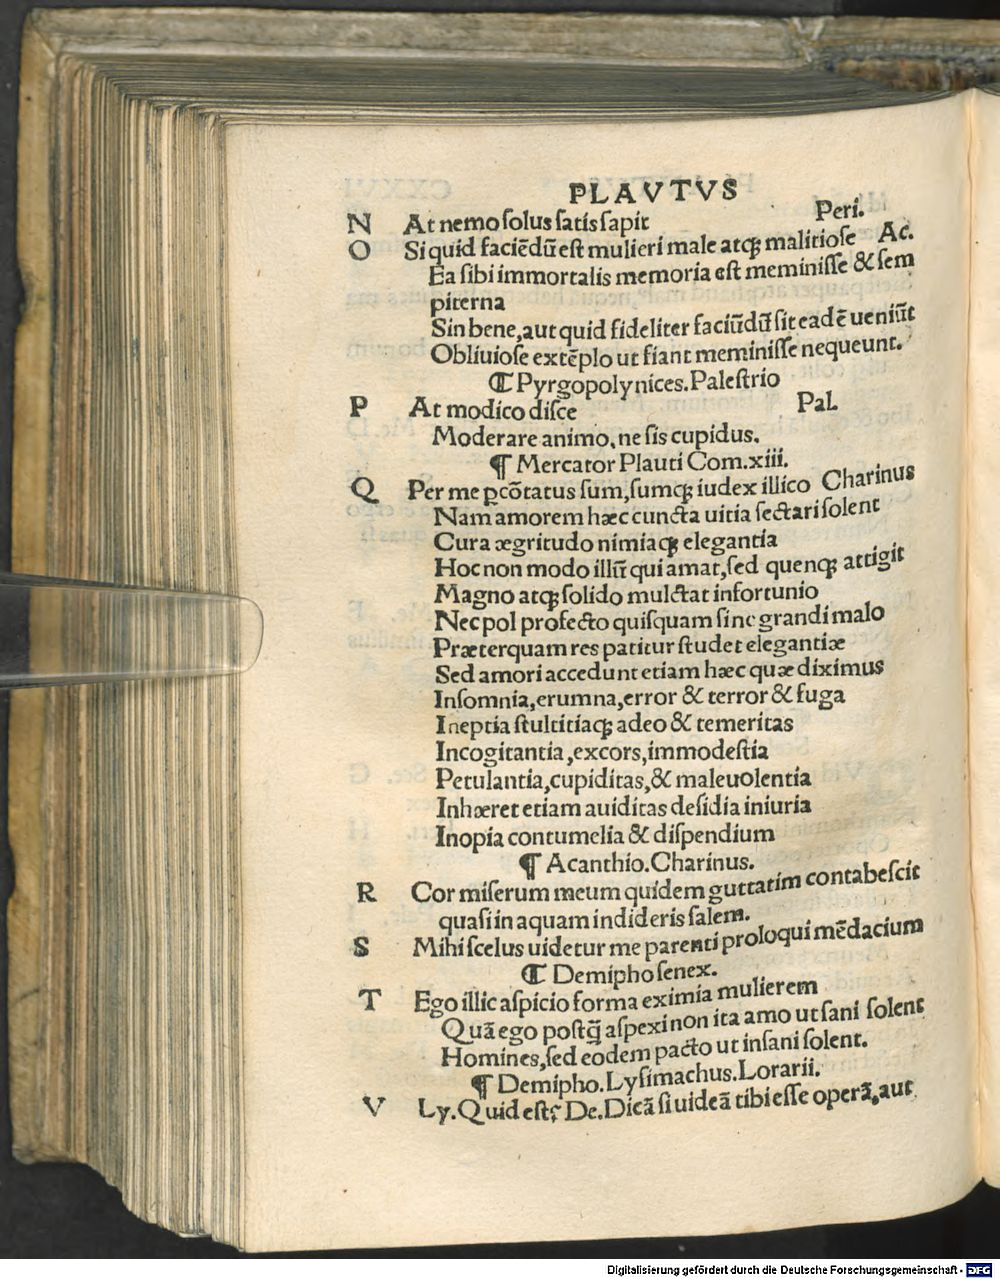 PLAVTVS
N At nemo ſolus ſatis ſapit Peri.
O Si quid faciēdū eſt mulieri male atqꝫ malitioſe Ac.
Ea ſibi immortalis memoria eſt meminiſſe & ſem
piterna
Sin bene, aut quid fideliter faciūdū ſit eadē ueniūt
Obliuioſe extēplo ut fiant meminiſſe nequeunt.
⁋ Pyrgopolynices. Paleſtrio
P At modico diſce Pal.
Moderare animo, ne ſis cupidus.
¶ Mercator Plauti Com. xiii.
Q Per me ꝑcōtatus ſum, ſumqꝫ iudex illico Charinus
Nam amorem hæc cuncta uitia ſectari ſolent
Cura ægritudo nimiaqꝫ elegantia
Hoc non modo illū qui amat, ſed quenqꝫ attigit
Magno atqꝫ ſolido mulctat infortunio
Nec pol profecto quiſquam ſine grandi malo
Præterquam res patitur ſtudet elegantiæ
Sed amori accedunt etiam hæc quæ diximus
Inſomnia, erumna, error & terror & fuga
Ineptia ſtultitiaqꝫ adeo & temeritas
Incogitantia, excors, immodeſtia
Petulantia, cupiditas, & maleuolentia
Inhæret etiam auiditas deſidia iniuria
Inopia contumelia & diſpendium
¶ Acanthio. Charinus.
R Cor miſerum meum quidem guttatim contabeſcit
quaſi in aquam indideris ſalem.
S Mihi ſcelus uidetur me parenti proloqui mēdacium
⁋ Demipho ſenex.
T Ego illic aſpicio forma eximia mulierem
Quā ego poſtq̄ aſpexi non ita amo ut ſani ſolent
Homines, ſed eodem pacto ut inſani ſolent.
¶ Demipho. Lyſimachus. Lorarii.
V Ly. Quid eſt? De. Dicā ſi uideā tibi eſſe operā, aut
Digitalisierung gefördert durch die Deutsche Forschungsgemeinschaft - DFG